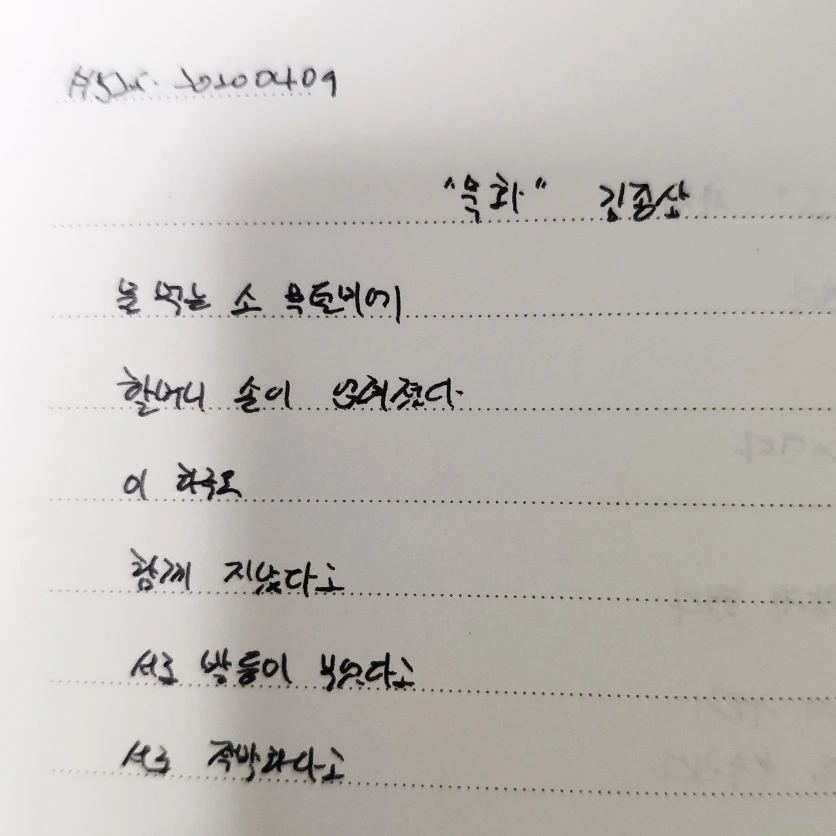 20200409
"묵화" 김종삼
물 먹는 소 목덜미에
할머니 손이 얹혀졌다.
이 하루도
함께 지났다고
서로 발등이 부었다고
서로 적막하다고